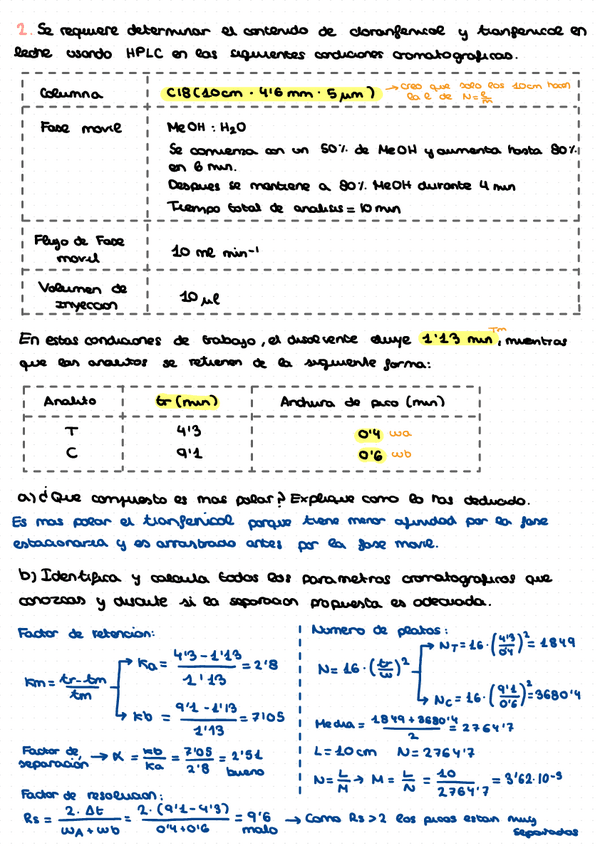 2. Se requiere determinar el contenido de cloranfenicol y tianfenicol en
leche usando HPLC en las siguientes condiciones cromatograficas.
Columna
C18 (10cm · 4'6 mm · 5 μm)
→ creo que solo los 10cm hacen
la L de N = L/H
Fase movil
MeOH : H2O
Se comienza con un 50% de MeOH y aumenta hasta 80%
en 6 min.
Despues se mantiene a 80% MeOH durante 4 min
Tiempo total de analisis = 10 min
Flujo de Fase
movil
10 ml min⁻¹
Volumen de
Inyeccion
10 μl
En estas condiciones de trabajo, el disolvente eluye 1'13 min, mientras
Tm
que los analitos se retienen de la siguiente forma:
Analito tr (min) Anchura de pico (min)
T 4'3 0'4 wa
C 9'1 0'6 wb
a) ¿Que compuesto es mas polar? Explique como lo has deducido.
Es mas polar el tianfenicol porque tiene menor afinidad por la fase
estacionaria y es arrastrado antes por la fase movil.
b) Identifica y calcula todos los parametros cromatograficos que
conozcas y discute si la separacion propuesta es adecuada.
Factor de retencion:
Km = (tr - tm)/tm
→ Ka = (4'3 - 1'13)/1'13 = 2'8
→ kb = (9'1 - 1'13)/1'13 = 7'05
Factor de
separación → α = kb/ka = 7'05/2'8 = 2'51
bueno
Factor de resolucion:
Rs = 2·Δt/(WA + Wb) = 2·(9'1 - 4'3)/(0'4 + 0'6) = 9'6
malo
→ Como Rs > 2 los picos estan muy
separados
Numero de platos:
N = 16·(tr/w)²
→ NT = 16·(4'3/0'4)² = 1849
→ NC = 16·(9'1/0'6)² = 3680'4
Media = (1849 + 3680'4)/2 = 2764'7
L = 10cm N = 2764'7
N = L/H → H = L/N = 10/2764'7 = 3'62·10⁻³